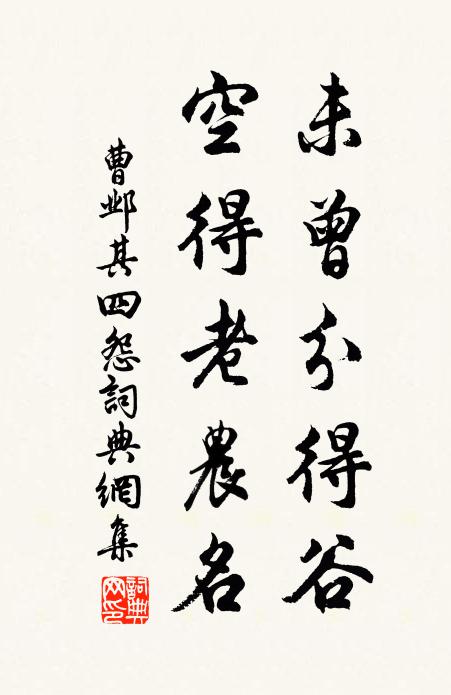 未曾分得谷
空得老農名
曹邺其四怨詞典網集
詞典网印